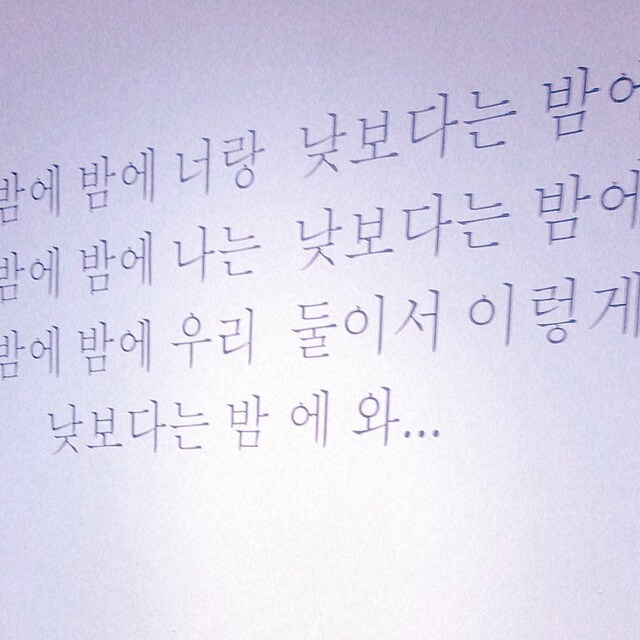 밤에 밤에 너랑 낮보다는 밤에
밤에 밤에 나는 낮보다는 밤에
밤에 밤에 우리 둘이서 이렇게
낮보다는 밤 에 와...